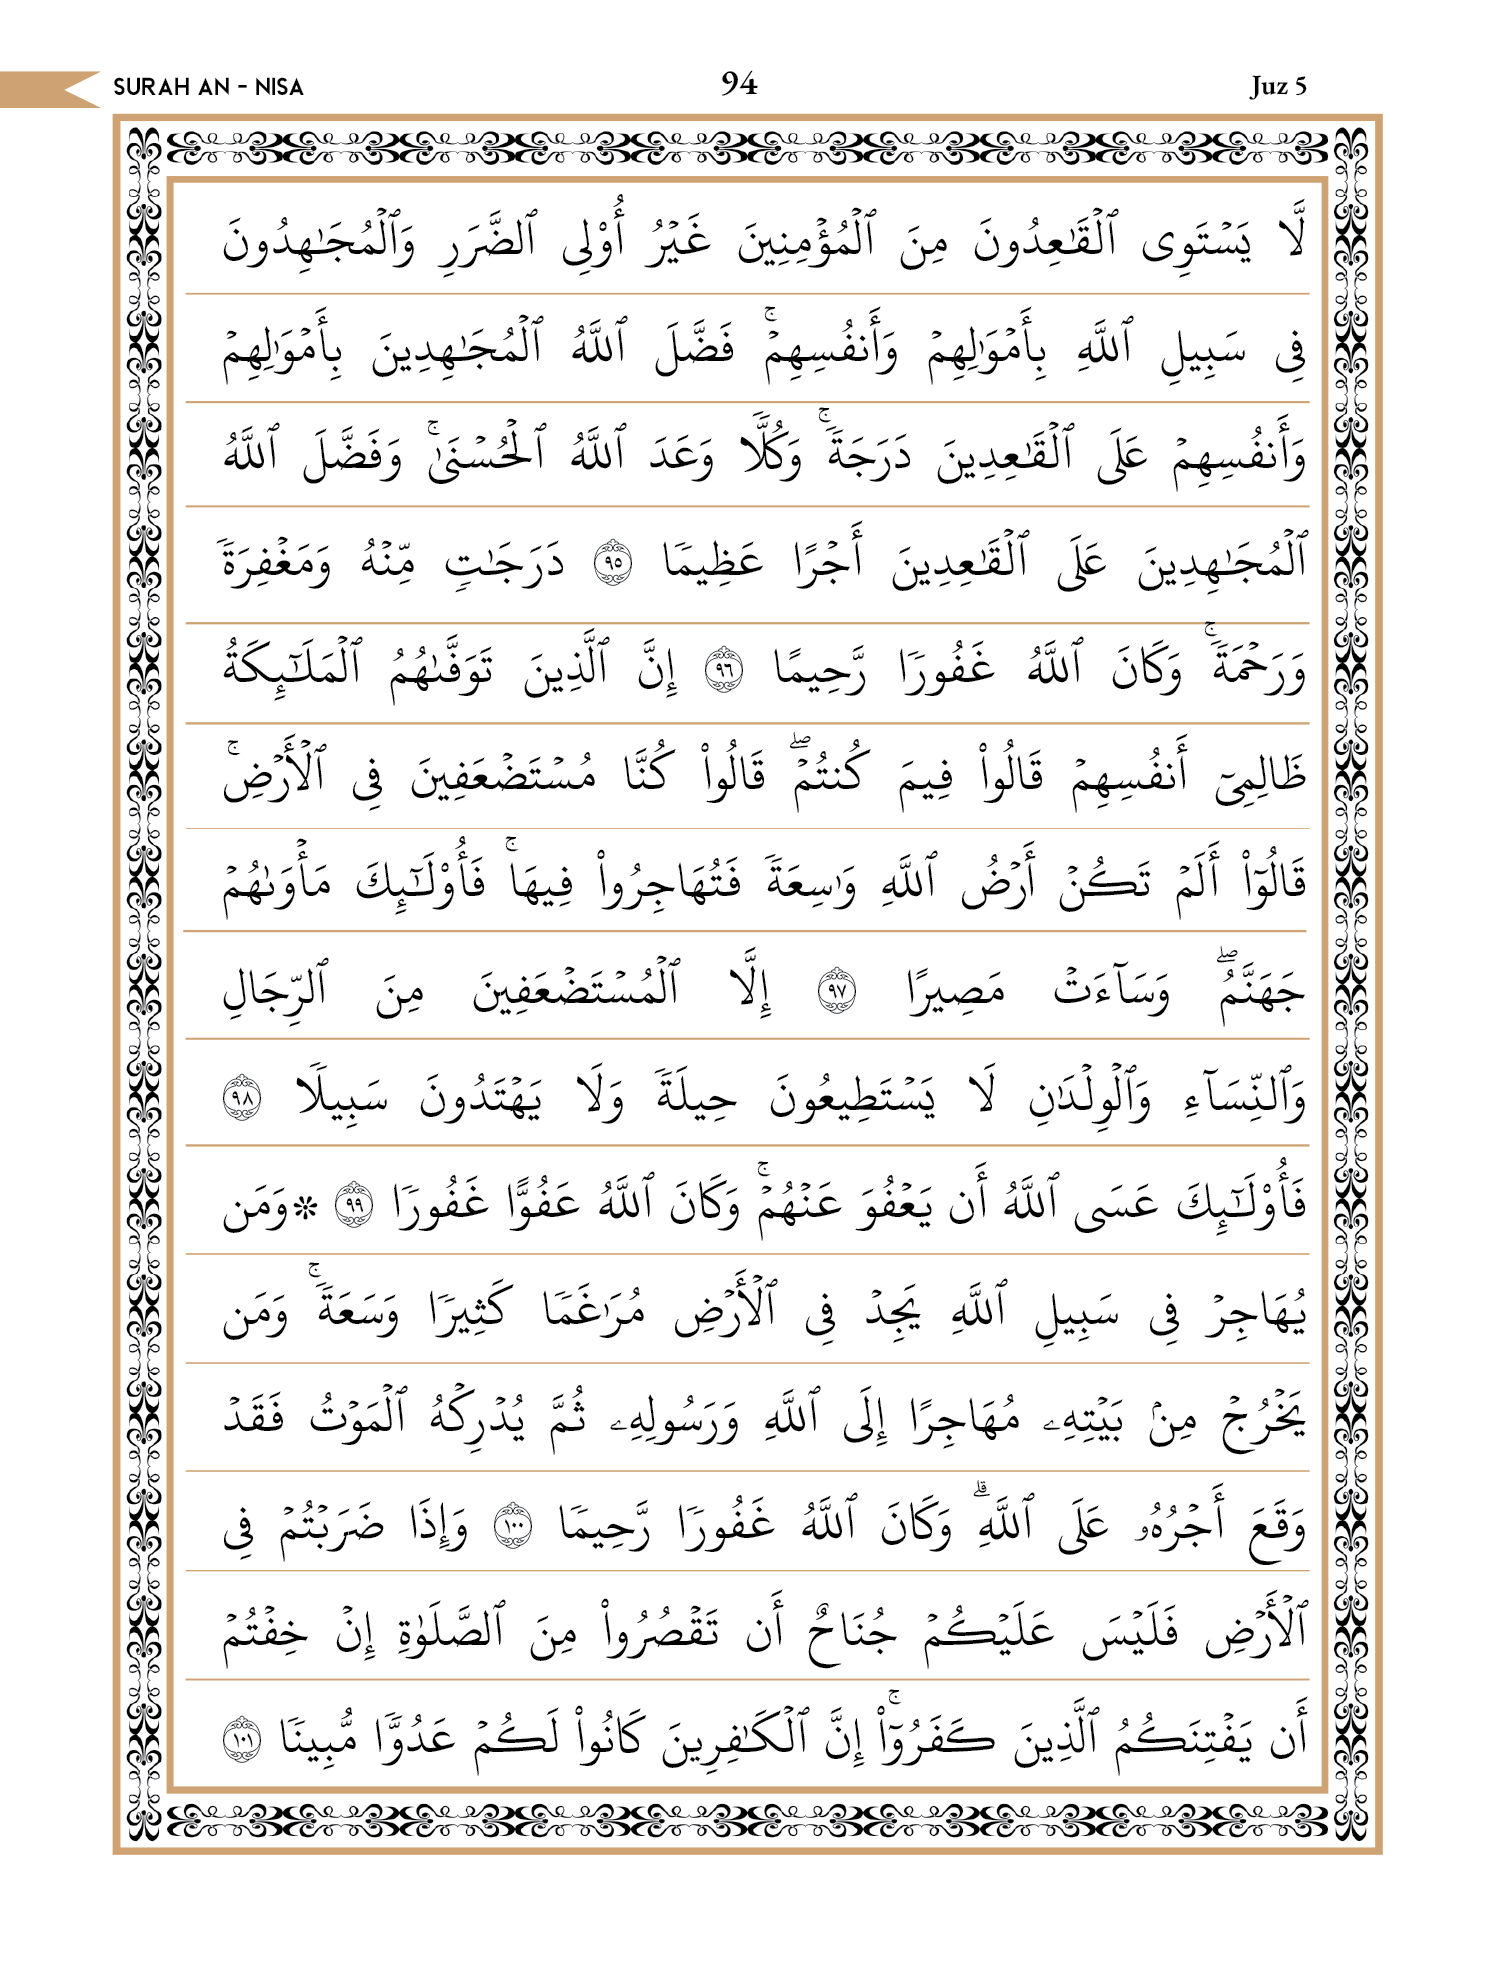 SURAH AN - NISA 94 Juz 5
لَّا يَسْتَوِى ٱلْقَـٰعِدُونَ مِنَ ٱلْمُؤْمِنِينَ غَيْرُ أُو۟لِى ٱلضَّرَرِ وَٱلْمُجَـٰهِدُونَ
فِى سَبِيلِ ٱللَّهِ بِأَمْوَٰلِهِمْ وَأَنفُسِهِمْ ۚ فَضَّلَ ٱللَّهُ ٱلْمُجَـٰهِدِينَ بِأَمْوَٰلِهِمْ
وَأَنفُسِهِمْ عَلَى ٱلْقَـٰعِدِينَ دَرَجَةً ۚ وَكُلًّا وَعَدَ ٱللَّهُ ٱلْحُسْنَىٰ ۚ وَفَضَّلَ ٱللَّهُ
ٱلْمُجَـٰهِدِينَ عَلَى ٱلْقَـٰعِدِينَ أَجْرًا عَظِيمًا ٩٥ دَرَجَـٰتٍ مِّنْهُ وَمَغْفِرَةً
وَرَحْمَةً ۚ وَكَانَ ٱللَّهُ غَفُورًا رَّحِيمًا ٩٦ إِنَّ ٱلَّذِينَ تَوَفَّىٰهُمُ ٱلْمَلَـٰٓئِكَةُ
ظَالِمِىٓ أَنفُسِهِمْ قَالُوا۟ فِيمَ كُنتُمْ ۖ قَالُوا۟ كُنَّا مُسْتَضْعَفِينَ فِى ٱلْأَرْضِ ۚ
قَالُوٓا۟ أَلَمْ تَكُنْ أَرْضُ ٱللَّهِ وَٰسِعَةً فَتُهَاجِرُوا۟ فِيهَا ۚ فَأُو۟لَـٰٓئِكَ مَأْوَىٰهُمْ
جَهَنَّمُ ۖ وَسَآءَتْ مَصِيرًا ٩٧ إِلَّا ٱلْمُسْتَضْعَفِينَ مِنَ ٱلرِّجَالِ
وَٱلنِّسَآءِ وَٱلْوِلْدَٰنِ لَا يَسْتَطِيعُونَ حِيلَةً وَلَا يَهْتَدُونَ سَبِيلًا ٩٨
فَأُو۟لَـٰٓئِكَ عَسَى ٱللَّهُ أَن يَعْفُوَ عَنْهُمْ ۚ وَكَانَ ٱللَّهُ عَفُوًّا غَفُورًا ٩٩ * وَمَن
يُهَاجِرْ فِى سَبِيلِ ٱللَّهِ يَجِدْ فِى ٱلْأَرْضِ مُرَٰغَمًا كَثِيرًا وَسَعَةً ۚ وَمَن
يَخْرُجْ مِنۢ بَيْتِهِۦ مُهَاجِرًا إِلَى ٱللَّهِ وَرَسُولِهِۦ ثُمَّ يُدْرِكْهُ ٱلْمَوْتُ فَقَدْ
وَقَعَ أَجْرُهُۥ عَلَى ٱللَّهِ ۗ وَكَانَ ٱللَّهُ غَفُورًا رَّحِيمًا ١٠٠ وَإِذَا ضَرَبْتُمْ فِى
ٱلْأَرْضِ فَلَيْسَ عَلَيْكُمْ جُنَاحٌ أَن تَقْصُرُوا۟ مِنَ ٱلصَّلَوٰةِ إِنْ خِفْتُمْ
أَن يَفْتِنَكُمُ ٱلَّذِينَ كَفَرُوٓا۟ ۚ إِنَّ ٱلْكَـٰفِرِينَ كَانُوا۟ لَكُمْ عَدُوًّا مُّبِينًا ١٠١